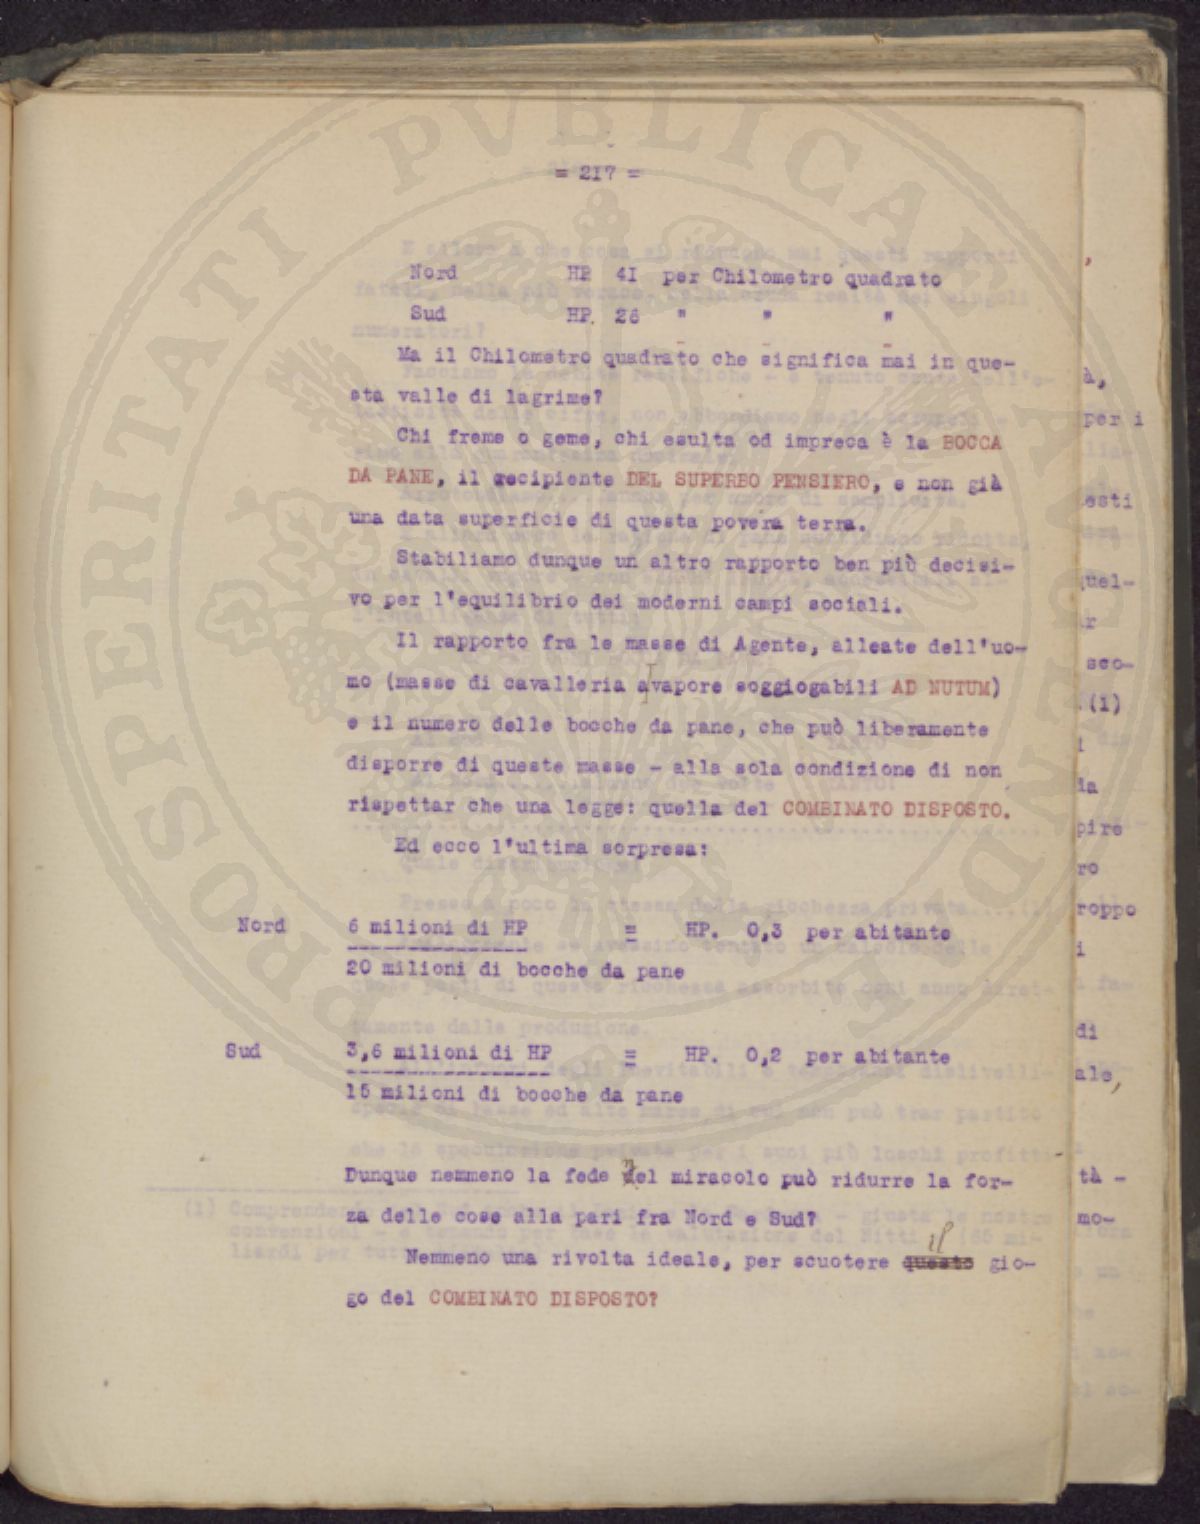 = 217 =
Nord HP 41 per Chilometro quadrato
Sud HP. 26 " " "
Ma il Chilometro quadrato che significa mai in que-
sta valle di lagrime?
Chi freme o geme, chi esulta od impreca è la BOCCA
DA PANE, il recipiente DEL SUPERBO PENSIERO, e non già
una data superficie di questa povera terra.
Stabiliamo dunque un altro rapporto ben più decisi-
vo per l'equilibrio dei moderni campi sociali.
Il rapporto fra le masse di Agente, alleate dell'uo-
mo (masse di cavalleria a|vapore soggiogabili AD NUTUM)
e il numero delle bocche da pane, che può liberamente
disporre di queste masse - alla sola condizione di non
rispettar che una legge: quella del COMBINATO DISPOSTO.
Ed ecco l'ultima sorpresa:
Nord 6 milioni di HP = HP. 0,3 per abitante
20 milioni di bocche da pane
Sud 3,6 milioni di HP = HP. 0,2 per abitante
15 milioni di bocche da pane
Dunque nemmeno la fede nel miracolo può ridurre la for-
za delle cose alla pari fra Nord e Sud?
il
Nemmeno una rivolta ideale, per scuotere questo gio-
go del COMBINATO DISPOSTO?
à,
per i
esti
quel-
ar
sco-
(1)
i
ia
pire
ro
roppo
i
di
ale,
tà -
mo-
PROSPERITATI PVBLICAE AVGENDAE